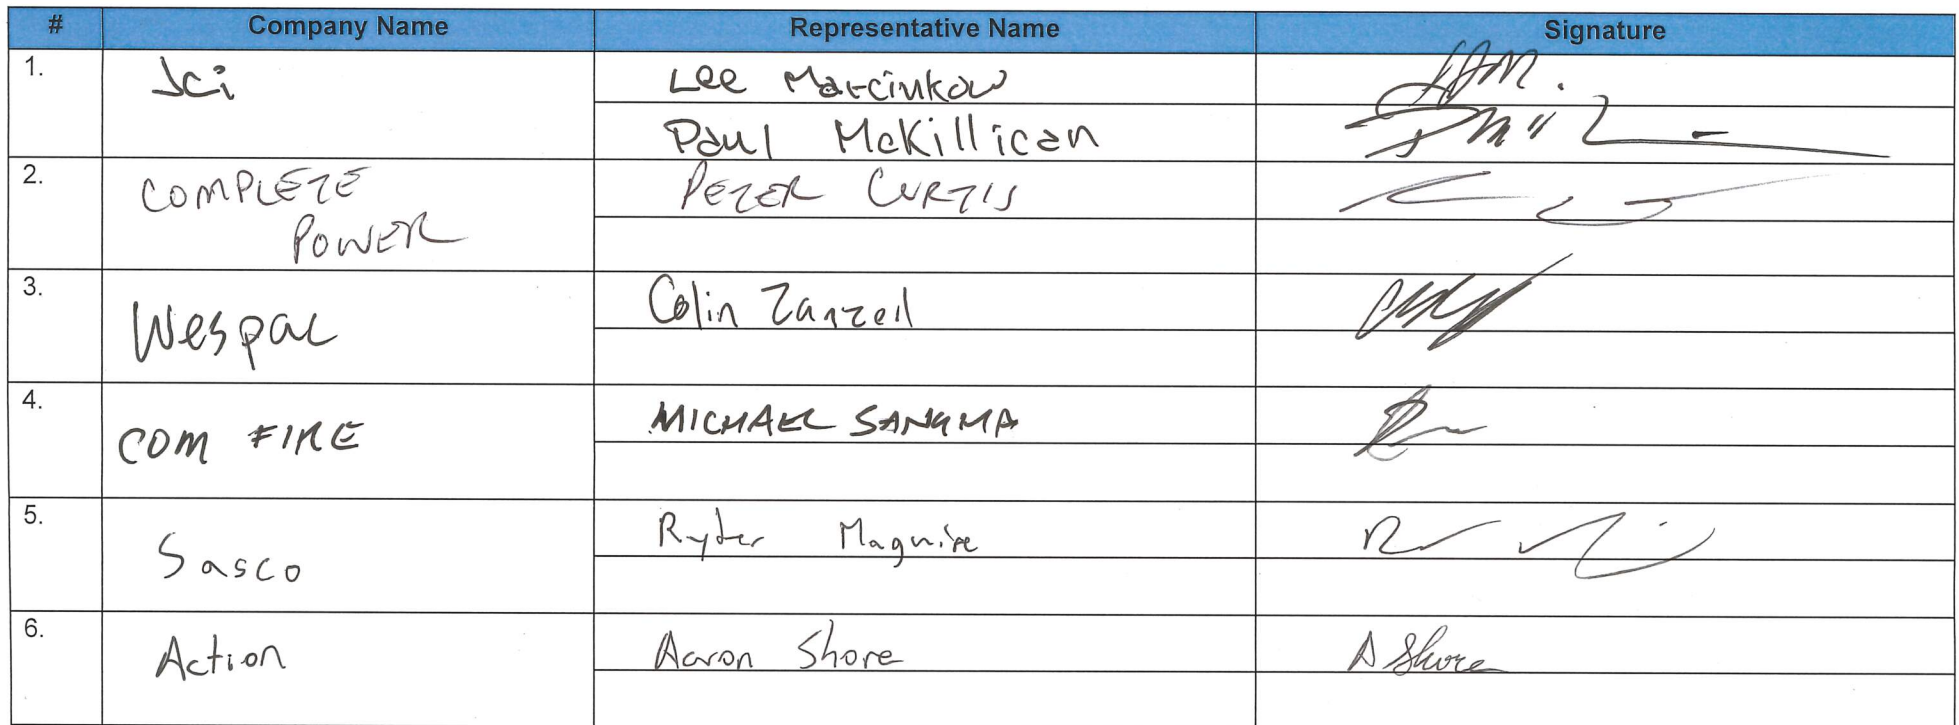 # Company Name Representative Name Signature
1. Jci Lee Marcinkow
Paul McKillican
2. COMPLETE PETER CURTIS
POWER
3. Wespac Colin
4. COM FIRE MICHAEL SANGMA
5. Sasco Ryder Maguire
6. Action Aaron Shore A Shore